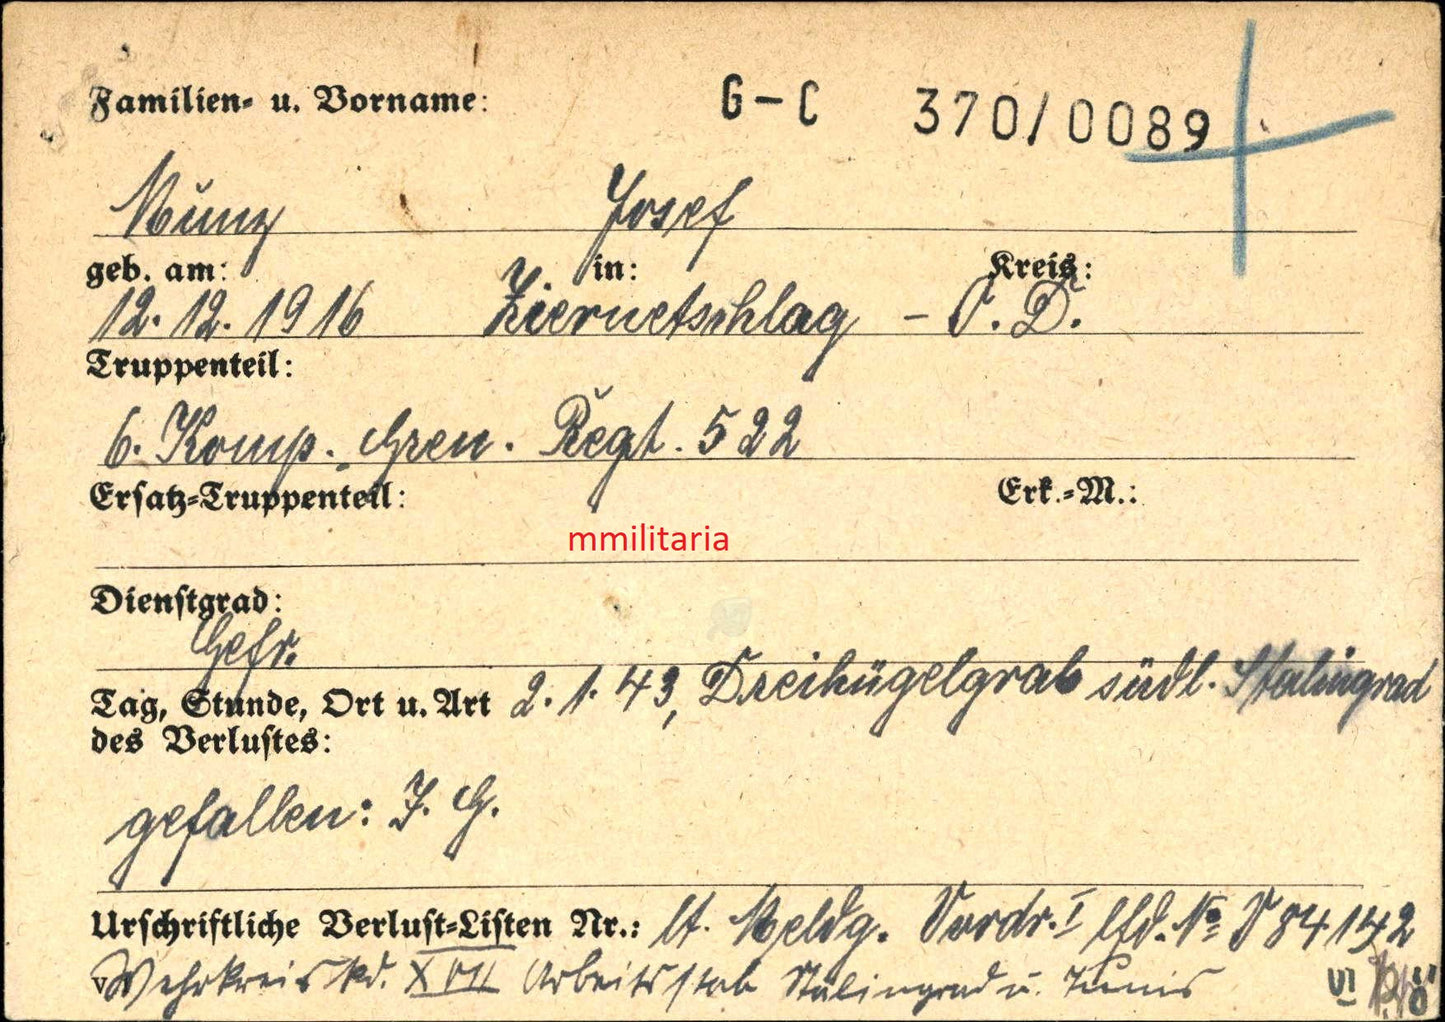 Familien- u. Vorname: G-C 370/0089
Munz Josef
geb. am: in: Kreis:
12. 12. 1916 Ziernetschlag - O. D.
Truppenteil:
6. Komp. Gren. Regt. 522
Ersatz-Truppenteil: Erk.-M.:
mmilitaria
Dienstgrad:
Gefr.
Tag, Stunde, Ort u. Art 2. 1. 43, Dreihügelgrab südl. Stalingrad
des Verlustes:
gefallen: J. G.
Urschriftliche Verlust-Listen Nr.: lt. Meldg. Vordr. I lfd. No 84142
Wehrkreis kd. XVII Arbeitsstab Stalingrad u. Tunis VI